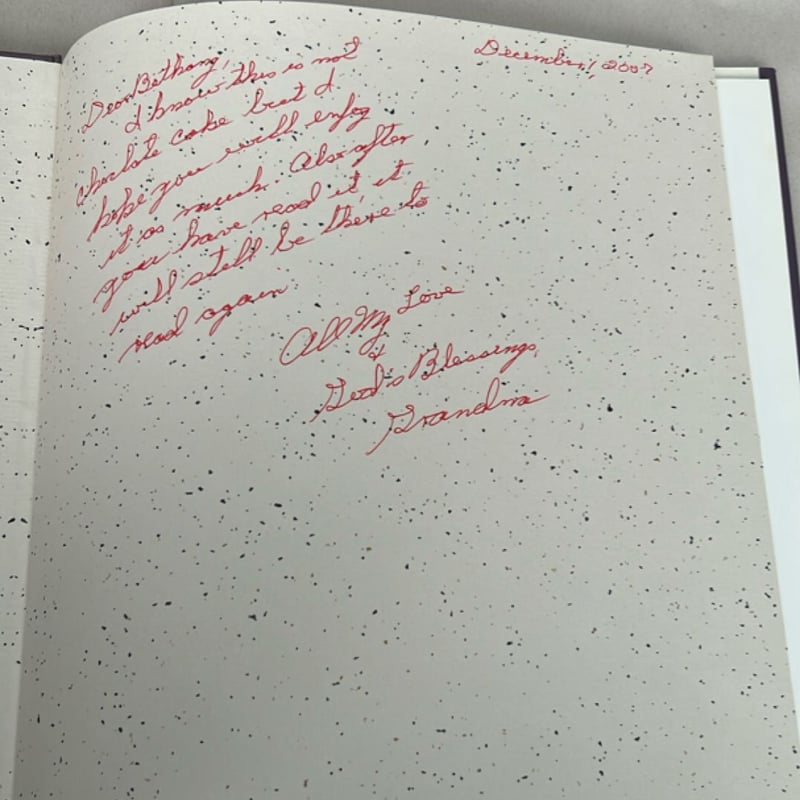 December, 2007
Dear Bethany,
I know this is not
chocolate cake but I
hope you will enjoy
it as much. Also after
you have read it, it
will still be there to
read again.
All My Love
&
God's Blessings,
Grandma